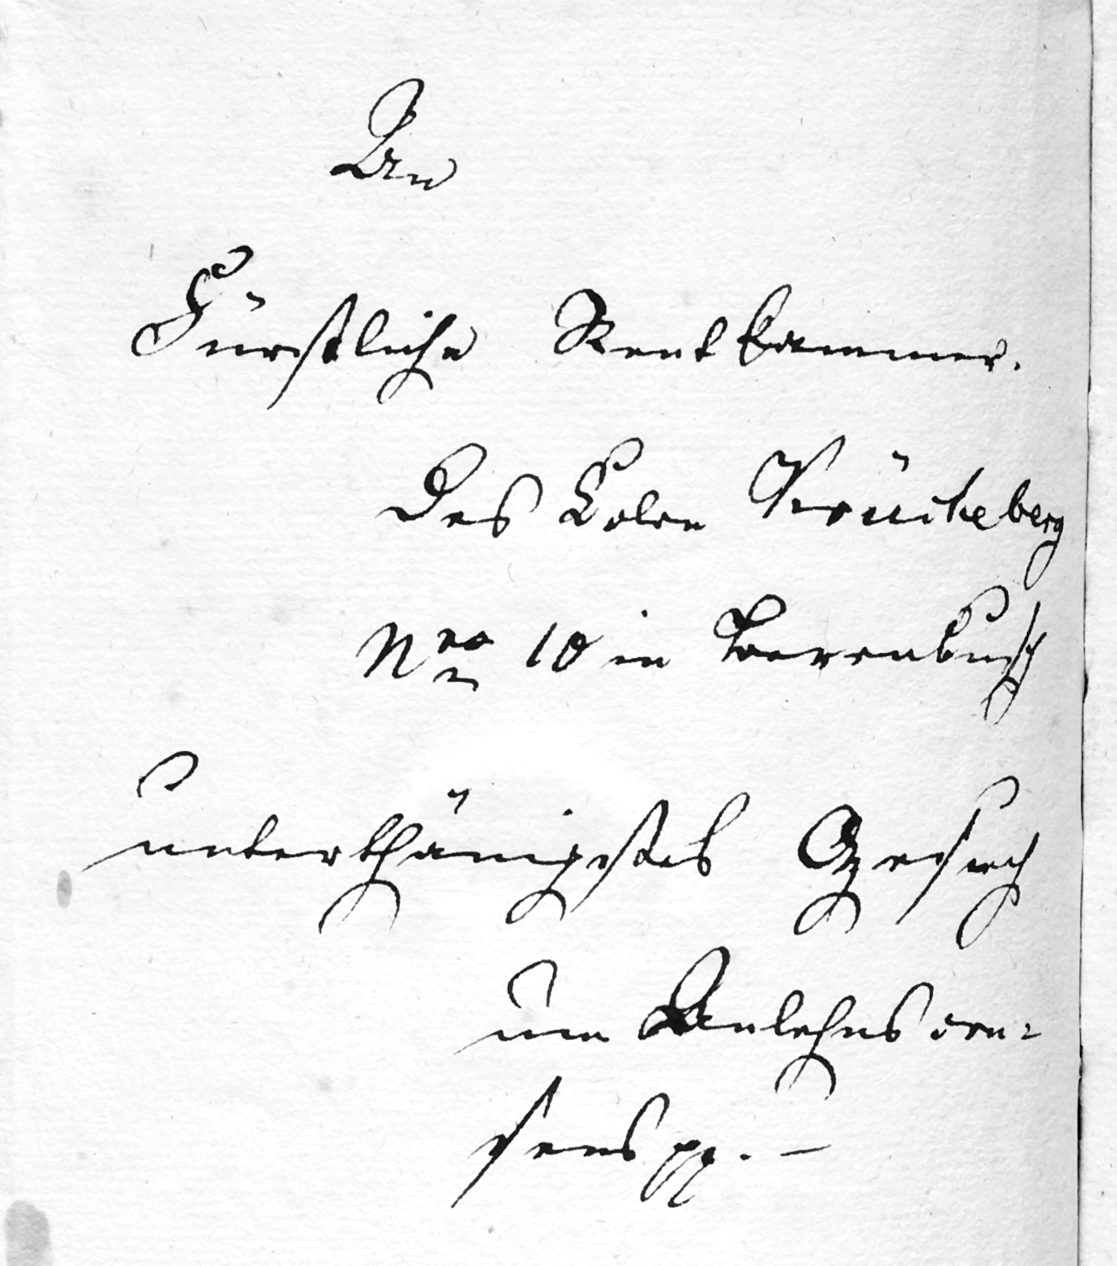 An
Fürstliche Rentkammer.
Des Colon Krückeberg
Nro 10 in Berenbusch
unterthänigstes Gesuch
um Anlehns con⸗
sens pp. —